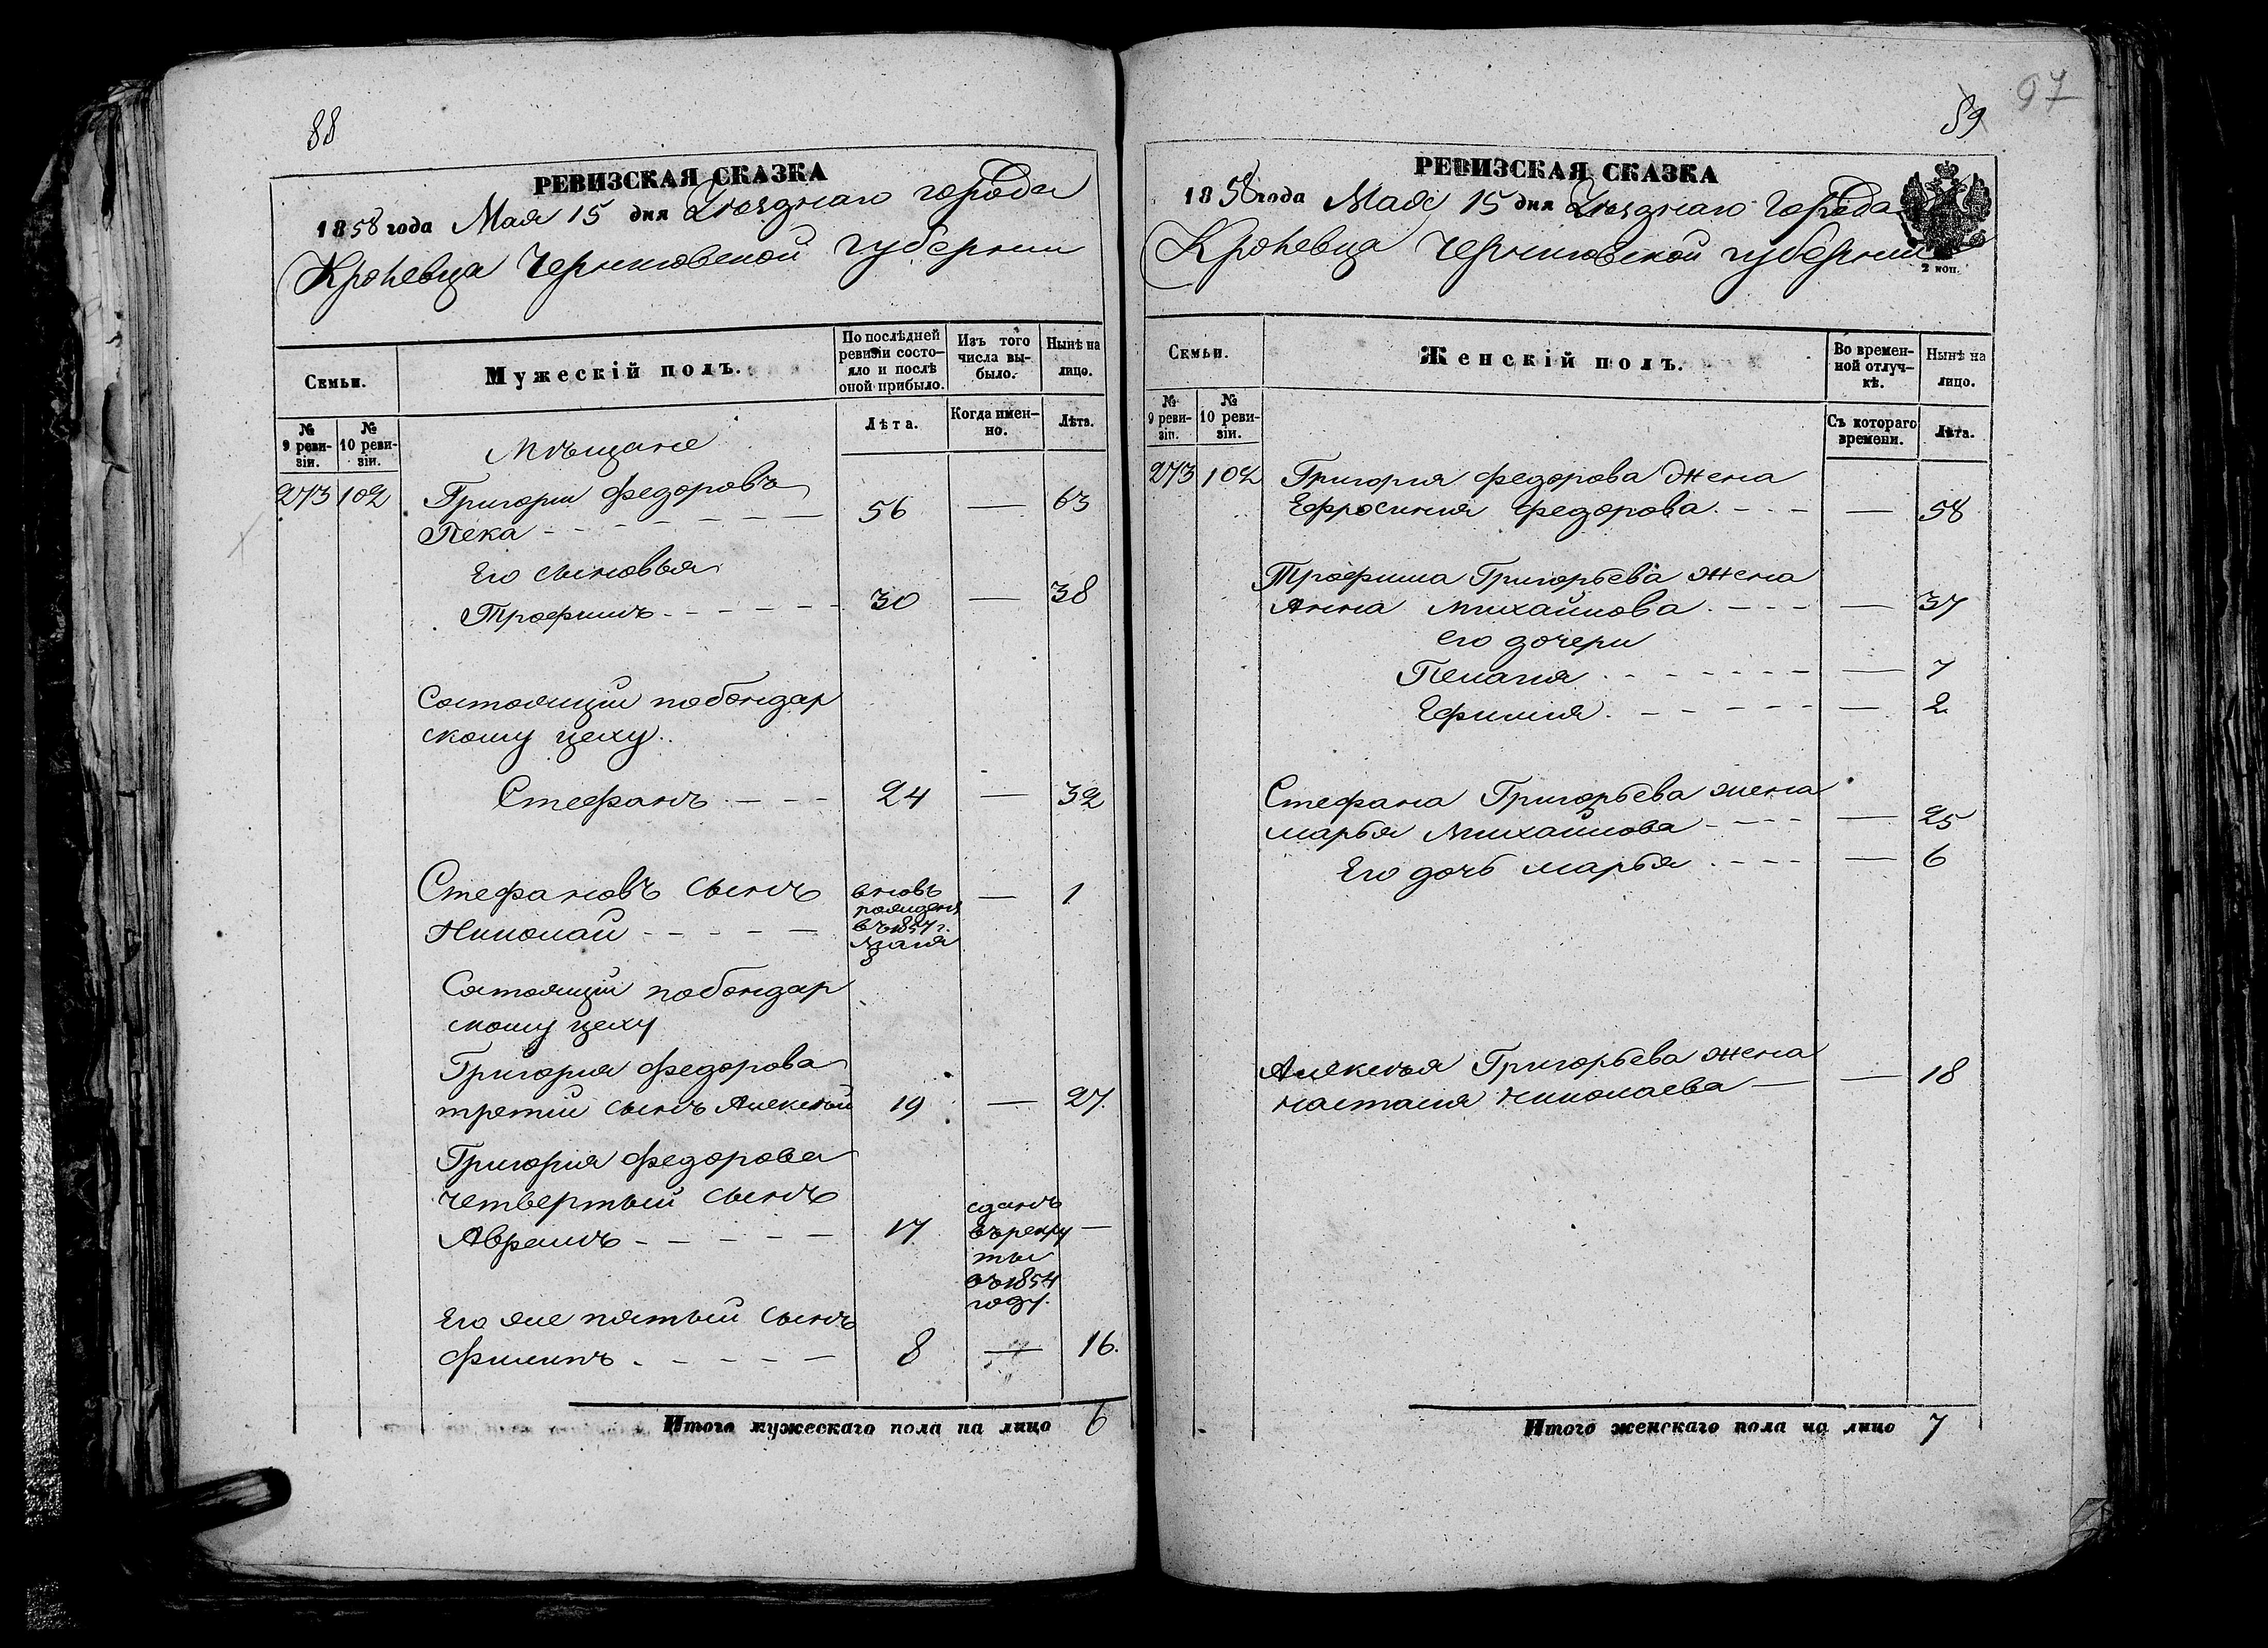 88
РЕВИЗСКАЯ СКАЗКА
1858 года Мая 15 дня Уѣзднаго города
Кролевца Черниговской губернии
Семьи.
Мужескій полъ.
По послѣдней ревизіи состо-
яло и послѣ
оной прибыло.
Изъ того
числа вы-
было.
Нынѣ на
лицо.
№
9 реви-
зіи.
№
10 реви-
зіи.
Лѣта.
Когда имен-
но.
Лѣта.
Мѣщане
273 102 Григории Федоровъ
Пека 56 — 63
Его сыновья
Трофимъ 30 — 38
Состоящии побондар
скому цеху.
Стефанъ 24 — 32
Стефановъ сынъ
Николай
вновь
рожденъ
въ 1857 г.
мая
8
— 1
Состоящии побондар
скому цеху
Григория Федорова
третии сынъ Алексѣй 19 — 27.
Григория Федорова
четвертый сынъ
Аврамъ 17
сданъ
въ рекру
ты
въ 1854
году.
—
Его же пятый сынъ
Филипъ 8 — 16.
Итого мужескаго пола на лицо 6
89
97
РЕВИЗСКАЯ СКАЗКА
1858 года Мая 15 дня Уѣзднаго города
Кролевца Черниговской губернии
2 коп.
Семьи.
Женскій полъ.
Во времен-
ной отлуч-
кѣ.
Нынѣ на
лицо.
№
9 реви-
зіи.
№
10 реви-
зіи.
Съ котораго
времени.
Лѣта.
273 102 Григория Федорова жена
Ефросиния Федорова — 58
Трофима Григорьева жена
Анна Михайлова — 37
его дочери
Пелагия — 7
Ефимия — 2
Стефана Григорьева жена
марья Михайлова — 25
Его дочь марья — 6
Алексѣя Григорьева жена
настасия николаева — 18
Итого женскаго пола на лицо 7